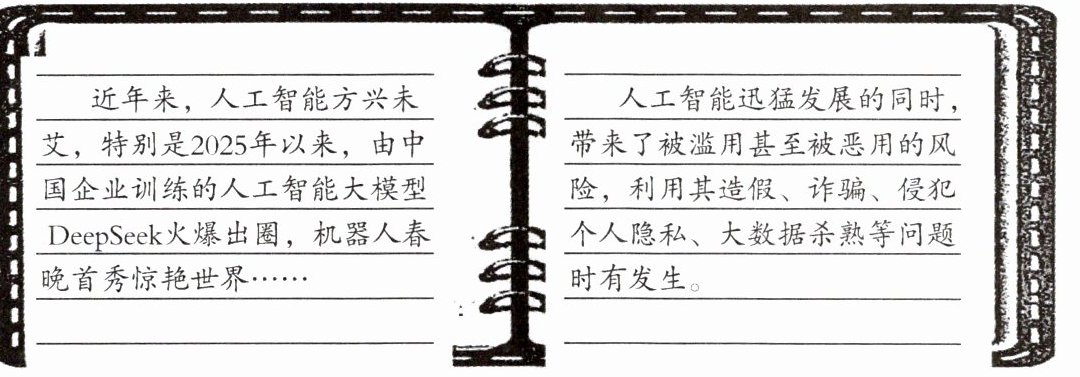 近年来，人工智能方兴未
艾，特别是2025年以来，由中
国企业训练的人工智能大模型
DeepSeek火爆出圈，机器人春
晚首秀惊艳世界……
人工智能迅猛发展的同时，
带来了被滥用甚至被恶用的风
险，利用其造假、诈骗、侵犯
个人隐私、大数据杀熟等问题
时有发生。